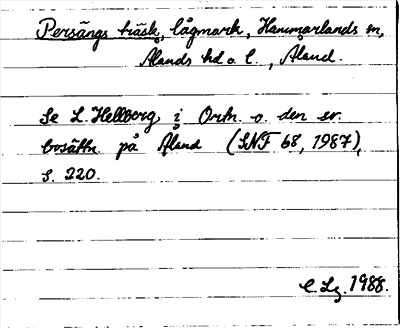 Persängs träsk, lågmark, Hammarlands sn,
Ålands hd o. l., Åland.
Se L. Hellberg, i Ortn. o. den sv.
bosättn. på Åland (SNF 68, 1987),
s. 220.
C. Lg. 1988.